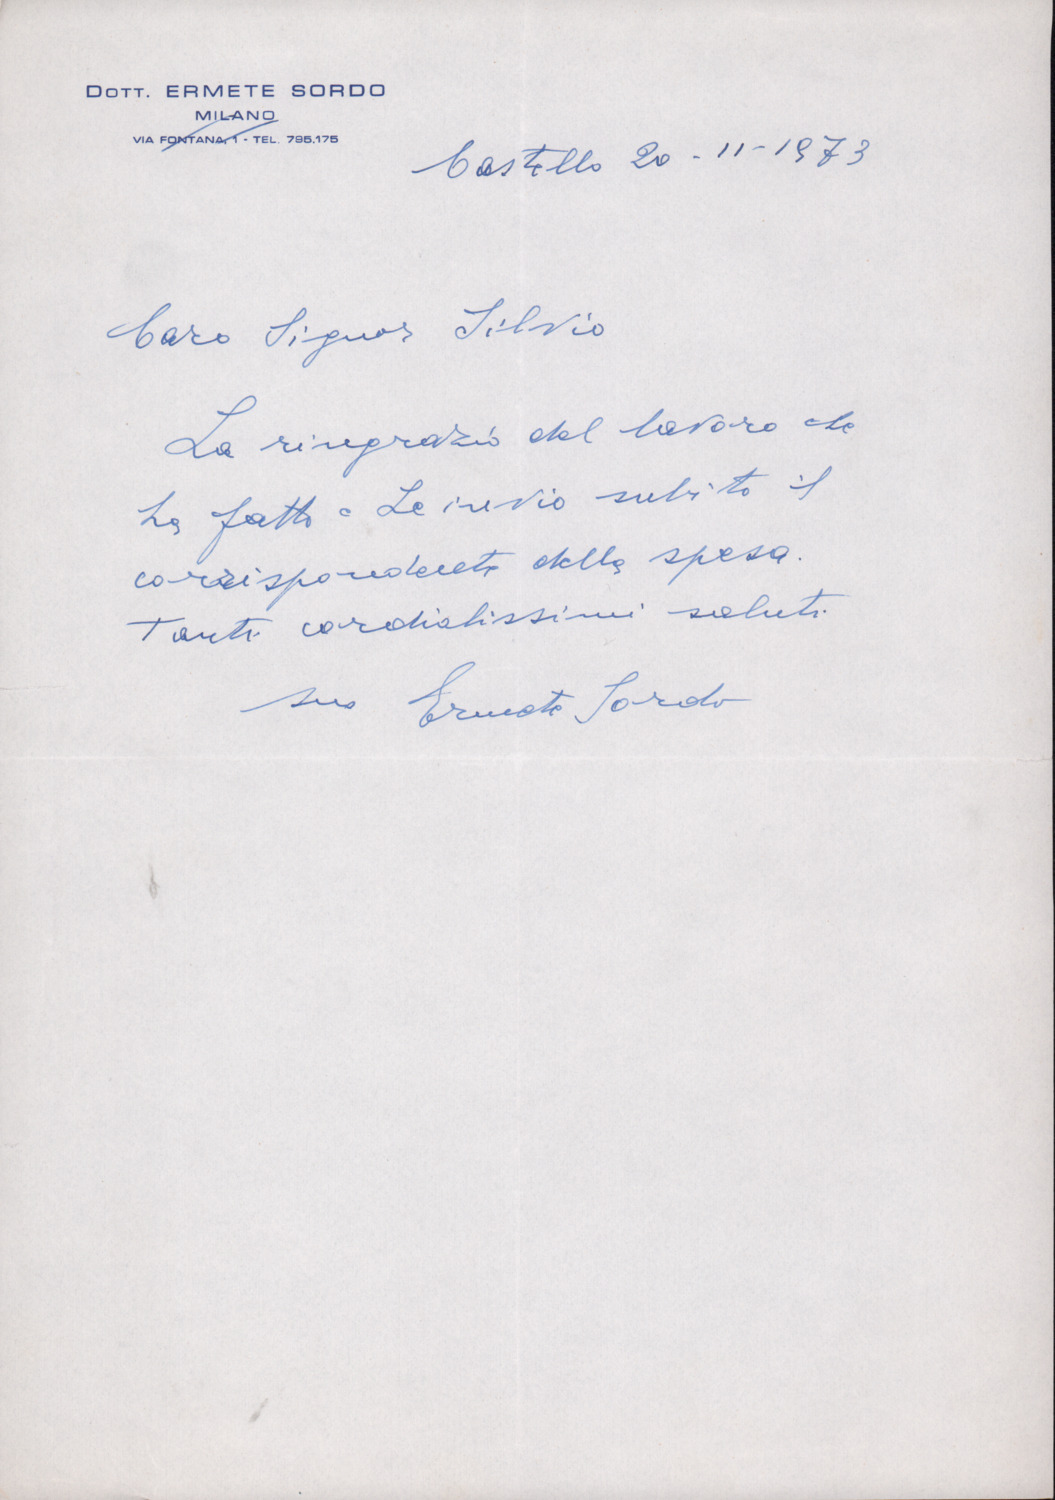 DOTT. ERMETE SORDO
MILANO
VIA FONTANA, 1 - TEL. 795.175
Castello 20-11-1973
Caro Signor Silvio
La ringrazio del lavoro che
ha fatto e Le invio subito il
corrispondente della spesa.
Tanti cordialissimi saluti
suo Ermete Sordo